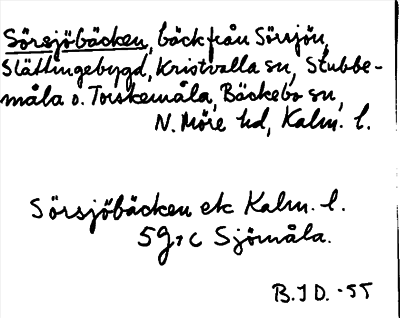 Sörsjöbäcken, bäck från Sörsjön,
Slättingebygd, Kristvalla sn, Stubbe-
måla o. Torskemåla, Bäckebo sn,
N. Möre hd, Kalm. l.
Sörsjöbäcken ek Kalm. l.
5G7c Sjömåla.
B.J D. -55